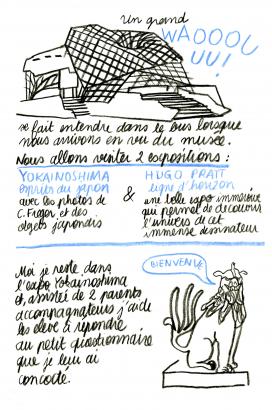 Un grand
WAOOOU
UU!
se fait entendre dans le bus lorsque
nous arrivons en vu du musée.
Nous allons visiter 2 expositions :
YOKAINOSHIMA
esprits du japon
avec les photos de
C. Fréger et des
objets japonais
&
HUGO PRATT
ligne d'horizon
une belle expo immersive
qui permet de découvrir
l'univers de cet
immense dessinateur
Moi je reste dans
l'expo Yokainoshima
et, assisté de 2 parents
accompagnateurs j'aide
les élève à répondre
au petit questionnaire
que je leur ai
concocté.
BIENVENUE